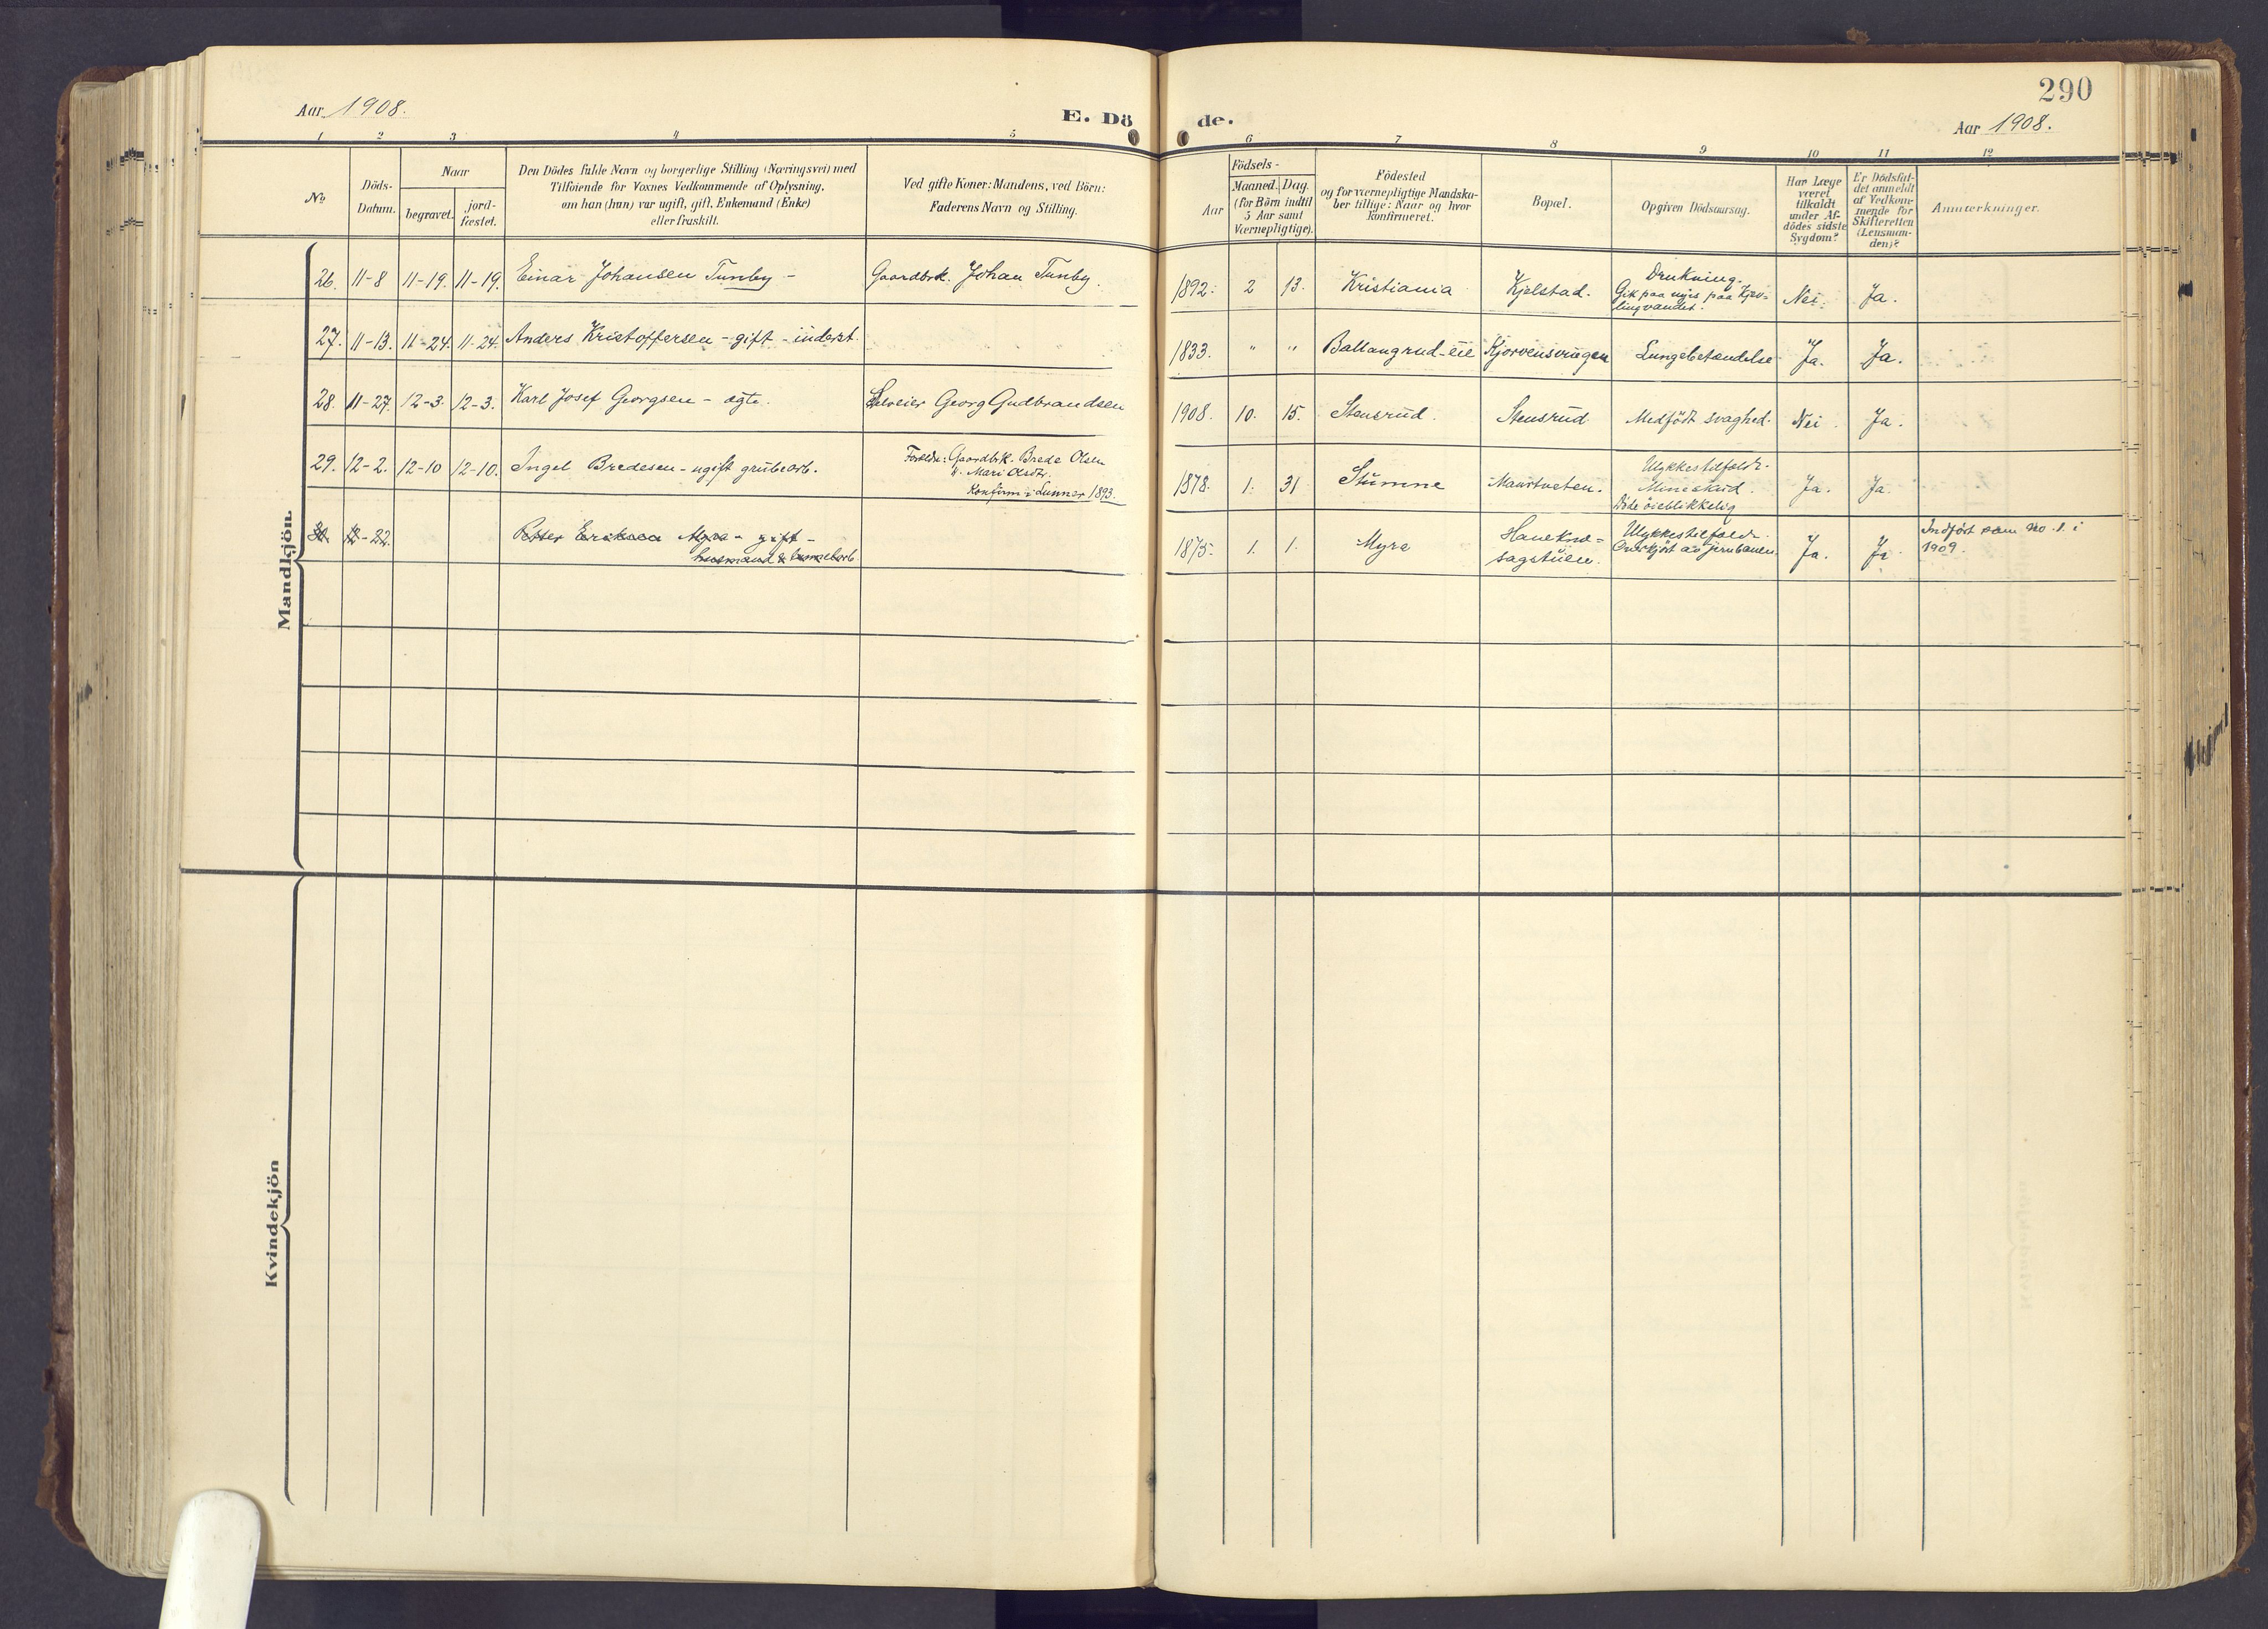 290
Aar 1908.
E. Dö
de.
Aar 1908.
1 2 3 4 5
6 7 8 9 10 11 12
No
Döds-
Datum.
Naar
begravet.
jord-
fæstet.
Den Dödes fulde Navn og borgerlige Stilling (Næringsvei) med
Tilföiende for Voxnes Vedkommende af Oplysning,
om han (hun) var ugift, gift, Enkemand (Enke)
eller fraskilt.
Ved gifte Koner: Mandens, ved Börn:
Faderens Navn og Stilling.
Födsels-
Aar
Maaned. Dag.
(for Börn indtil
5 Aar samt
Værnepligtige).
Födested
og for værnepligtige Mandska-
ber tillige: Naar og hvor
konfirmeret.
Bopæl.
Opgiven Dödsaarsag.
Har Læge
været
tilkaldt
under Af-
dödes sidste
Sygdom?
Er Dödsfal-
det anmeldt
af Vedkom-
mende for
Skifteretten
(Lensman-
den)?
Anmærkninger.
Mandkjön.
26. 11-8 11-19. 11-19. Einar Johansen Tunby - Gaardbrk. Johan Tunby. 1892. 2 13. Kristiania Kjelstad. Drukning.
Gik paa nyis paa Kjev-
lingvandet.
Nei. Ja.
27. 11-13. 11-24. 11-24. Anders Kristoffersen - gift - inderst. 1833. " " Ballangrud-eie Lungebetændelse Ja. Ja.
28. 11-27. 12-3. 12-3. Karl Josef Georgsen - ægte. Selveier Georg Gudbrandsen 1908. 10. 15. Stensrud. Stensrud Medfödt svaghed. Nei. Ja.
29. 12-2. 12-10 12-10. Ingel Bredesen - ugift grubearb. Forældre: Gaardbrk. Brede Olsen
Mari Olsdtr.
Konfirm. i Lunner 1893.
1878. 1. 31 Stumne Ulykkestilfælde.
Mineskud.
Döde öieblikkelig
Ja. Ja.
30. 12-22. Petter Eriksen Myra - gift -
husmand &
1875. 1. 1. Myra Hanekne-
sagstuen.
Ulykkestilfælde.
Overkjört av jernbanen.
Ja. Ja
Indfört som no. 1. i
1909.
Kvindekjön